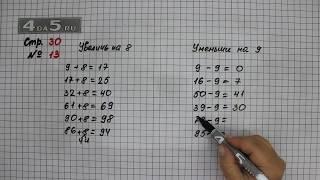 4DA5.RU
Стр. 30
№ 13
Увеличь на 8
9+8=17
17+8=25
32+8=40
61+8=69
90+8=98
86+8=94
Уменьши на 9
9-9=0
16-9=7
50-9=41
39-9=30
-9=
95-